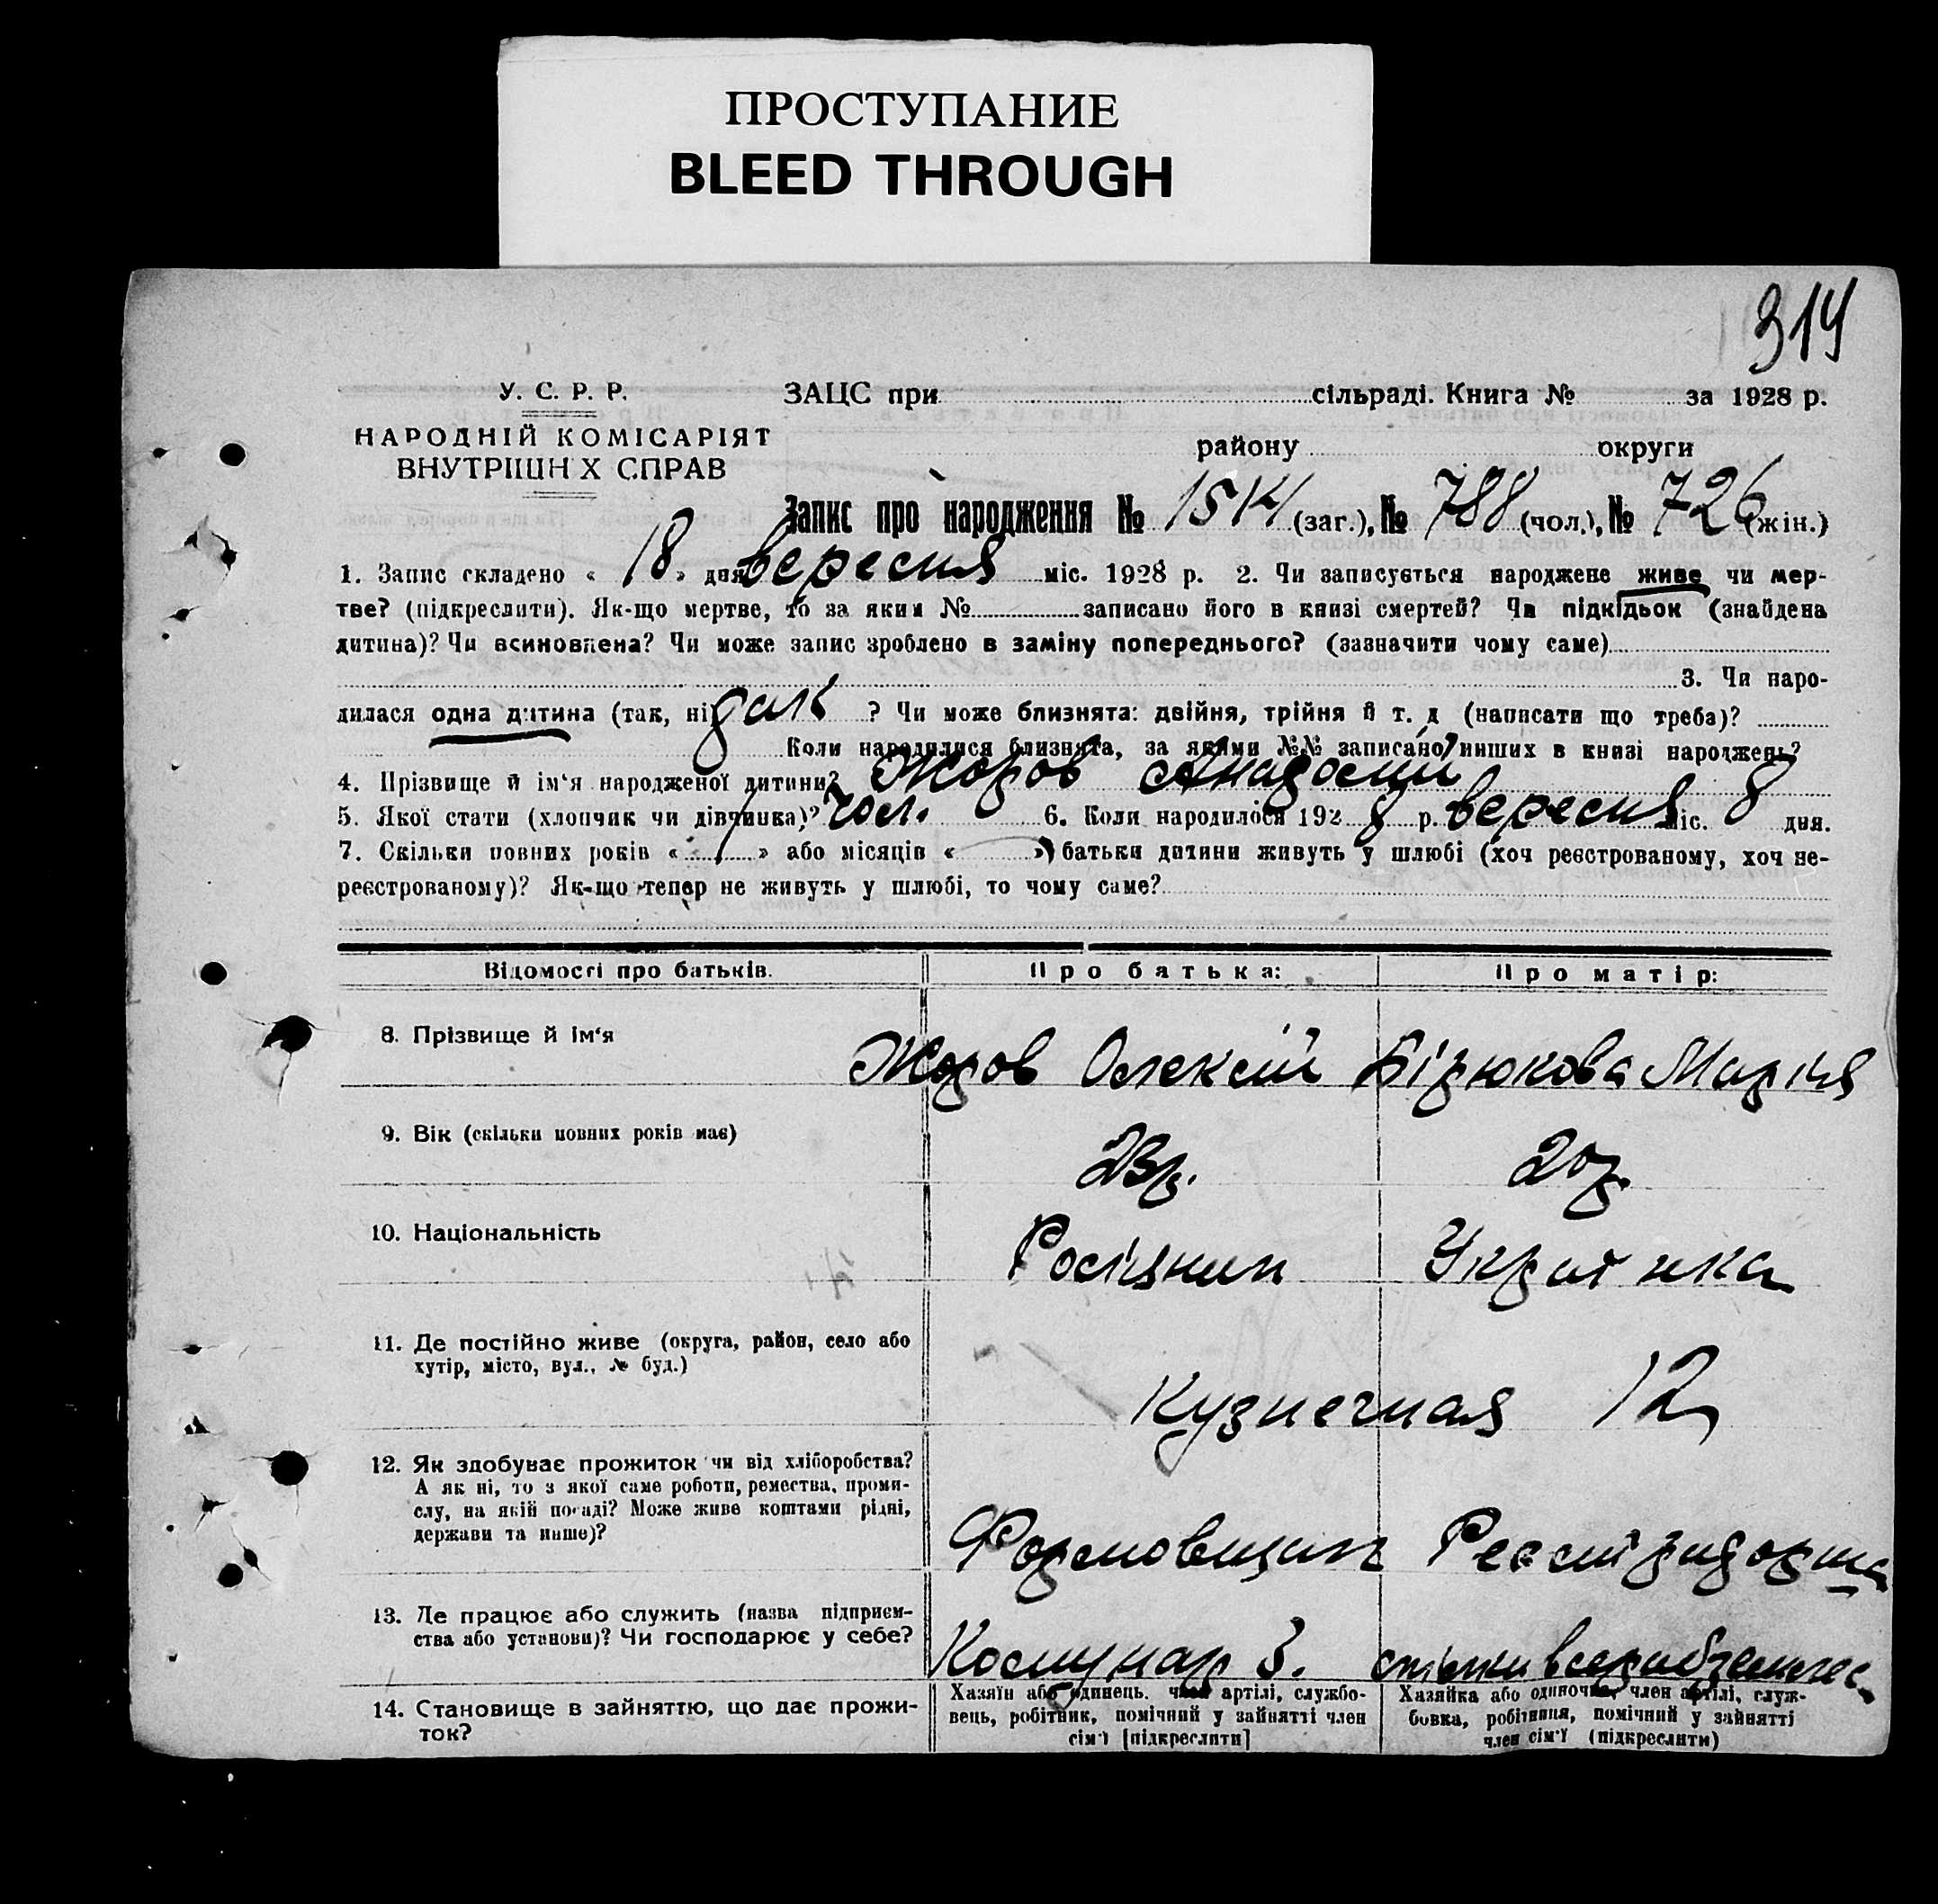 ПРОСТУПАНИЕ
BLEED THROUGH
314
У. С. Р. Р.
НАРОДНІЙ КОМІСАРІЯТ
ВНУТРІШН Х СПРАВ
ЗАЦС при сільраді. Книга № за 1928 р.
району округи
Запис про народження № 1514 (заг.), № 788 (чол.), № 726 (жін.)
1. Запис складено « 18 » дня вересня міс. 1928 р. 2. Чи записується народжене живе чи мер-
тве? (підкреслити). Як-що мертве, то за яким № записано його в книзі смертей? Чи підкідьок (знайдена
дитина)? Чи всиновлена? Чи може запис зроблено в заміну попереднього? (зазначити чому саме)
3. Чи наро-
дилася одна дитина (так, ні) ? Чи може близнята: двійня, трійня й т. д (написати що треба)?
Коли народилися близнята, за якими №№ записано инших в книзі народжень?
4. Прізвище й ім‘я народженої дитини? Жоров
5. Якої стати (хлопчик чи дівчинка)? чол. 6. Коли народилося 1928 р. вересня міс. 8 дня.
7. Скільки повних років « 1 » або місяців « » батьки дитини живуть у шлюбі (хоч реєстрованому, хоч не-
реєстрованому)? Як-що тепер не живуть у шлюбі, то чому саме?
Відомості про батьків. Про батька: Про матір:
8. Прізвище й ім‘я Жоров Олексій Бірюкова Марія
9. Вік (скільки повних років має) 23р. 20р.
10. Національність Росіянин Українка
11. Де постійно живе (округа, район, село або
хутір, місто, вул., № буд.)
Кузнечная 12
12. Як здобуває прожиток чи від хліборобства?
А як ні, то з якої саме роботи, ремества, проми-
слу, на якій посаді? Може живе коштами рідні,
держави та инше)?
Формовщик Реєстраторша
13. Де працює або служить (назва підприєм-
ства або установи)? Чи господарює у себе?
Комунар З. спілки всеробземлес
14. Становище в зайняттю, що дає прожи-
ток?
Хазяїн або одинець, член артілі, службо-
вець, робітник, помічний у зайнятті член
сім‘ї [підкреслити]
Хазяйка або одиночка, член артілі, служ-
бовка, робітниця, помічний у зайнятті
член сім‘ї (підкреслити)